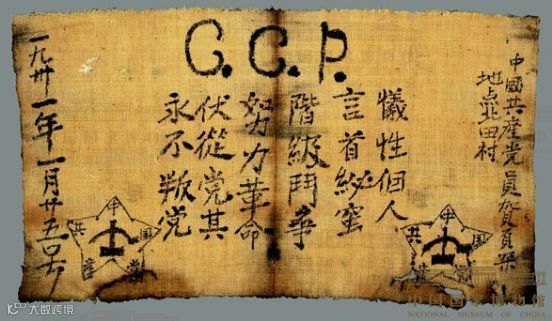 C.C.P.
中國共產党員賀頁朶
地点北田村
犧性個人
言首秘蜜
階級鬥爭
努力革命
伏從党其
永不叛党
一九卅一年一月廿五号
中国共產党
中国共
中国国家博物馆
NATIONAL MUSEUM OF CHINA
大数跨境